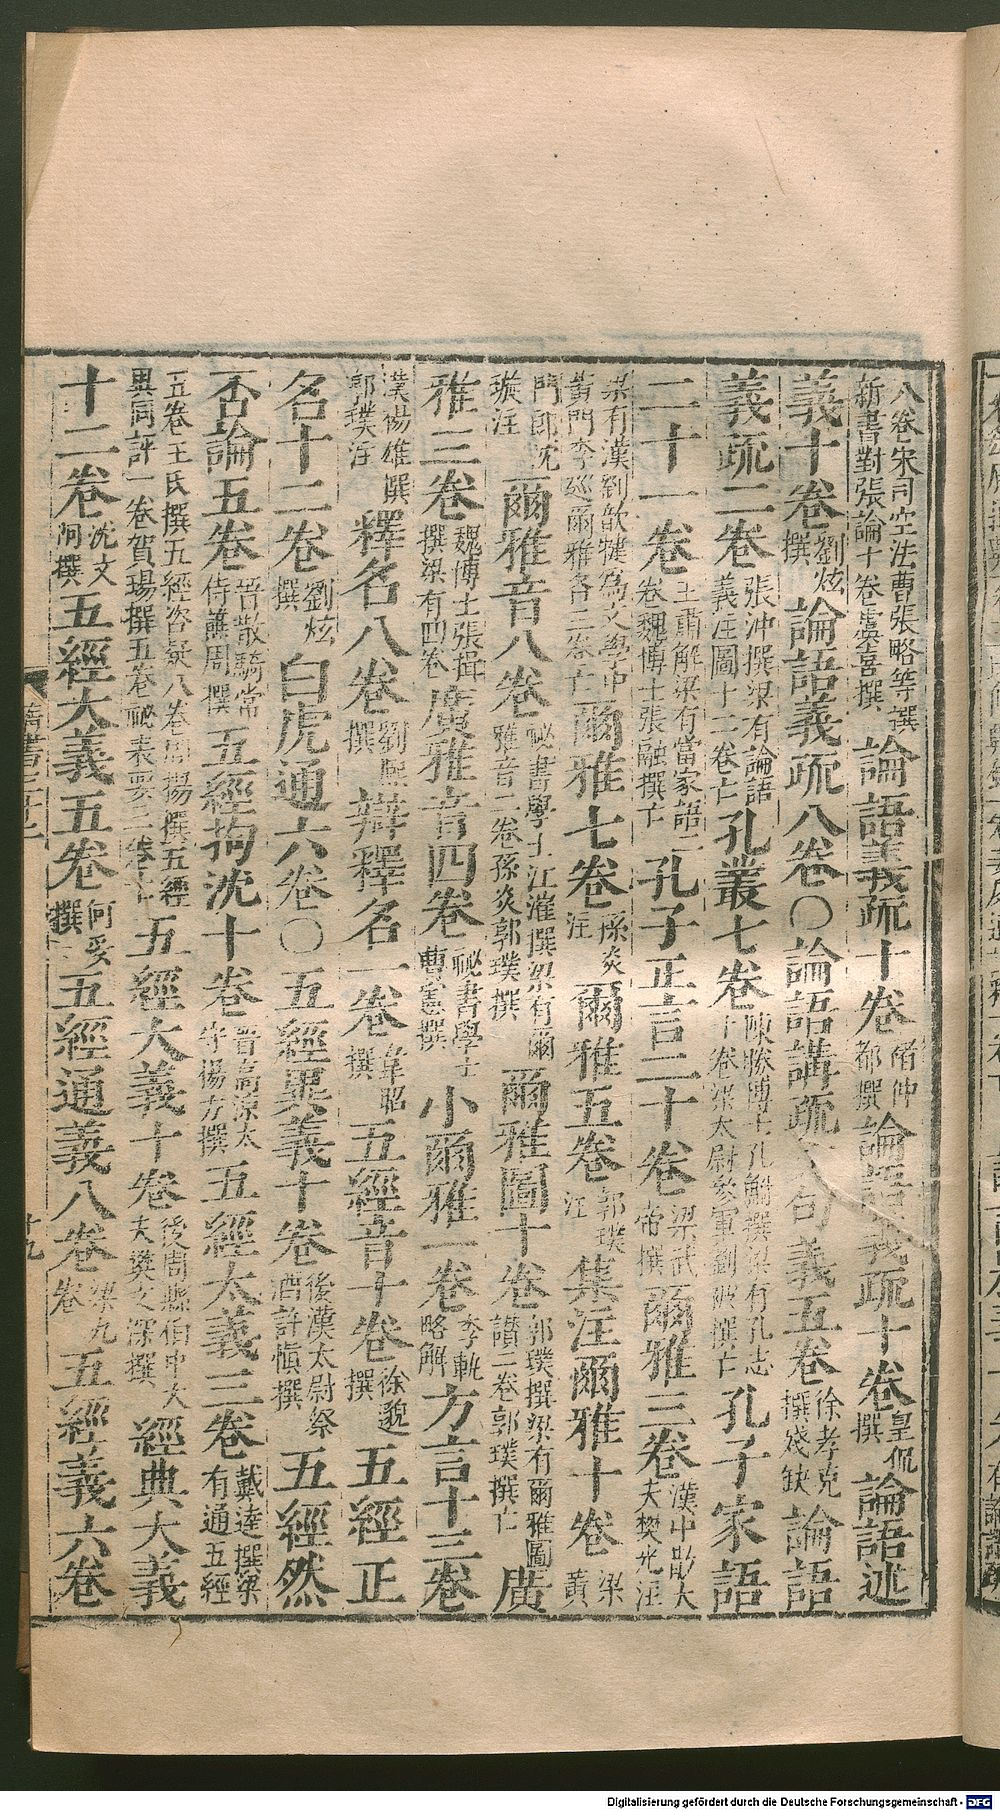 八卷宋司空法曹張略等撰新書對張論十卷虞喜撰 論語義疏十卷 褚仲都撰 論語義疏十卷 皇侃撰 論語述
義十卷 劉炫撰 論語義疏八卷○論語講疏文句義五卷 徐孝克撰殘缺 論語
義疏二卷 張沖撰梁有論語義注圖十二卷亡 孔叢七卷 陳勝博士孔鮒撰梁有孔志十卷梁太尉參軍劉被撰亡 孔子家語
二十一卷 王肅解梁有當家語二卷魏博士張融撰亡 孔子正言二十卷 梁武帝撰 爾雅三卷 漢中散大夫樊光注
梁有漢劉歆犍為文學中黃門李巡爾雅各三卷亡 爾雅七卷 孫炎注 爾雅五卷 郭璞注 集注爾雅十卷 梁黃
門郎沈璇注 爾雅音八卷 祕書學士江漼撰梁有爾雅音二卷孫炎郭璞撰 爾雅圖十卷 郭璞撰梁有爾雅圖讃二卷郭璞撰亡 廣
雅三卷 魏博士張揖撰梁有四卷 廣雅音四卷 祕書學士曹憲撰 小爾雅一卷 李軌略解 方言十三卷
漢楊雄撰郭璞注 釋名八卷 劉熙撰 辯釋名一卷 韋昭撰 五經音十卷 徐邈撰 五經正
名十二卷 劉炫撰 白虎通六卷○五經異義十卷 後漢太尉祭酒許慎撰 五經然
否論五卷 晉散騎常侍譙周撰 五經拘沈十卷 晉高涼太守楊方撰 五經大義三卷 戴逵撰梁有通五經
五卷王氏撰五經咨疑八卷周楊撰五經異同評一卷賀瑒撰五卷祕表要三卷亡 五經大義十卷 後周縣伯中大夫樊文深撰 經典大義
十二卷 沈文阿撰 五經大義五卷 何妥撰 五經通義八卷 梁九卷 五經義六卷
十九
Digitalisierung gefördert durch die Deutsche Forschungsgemeinschaft - DFG